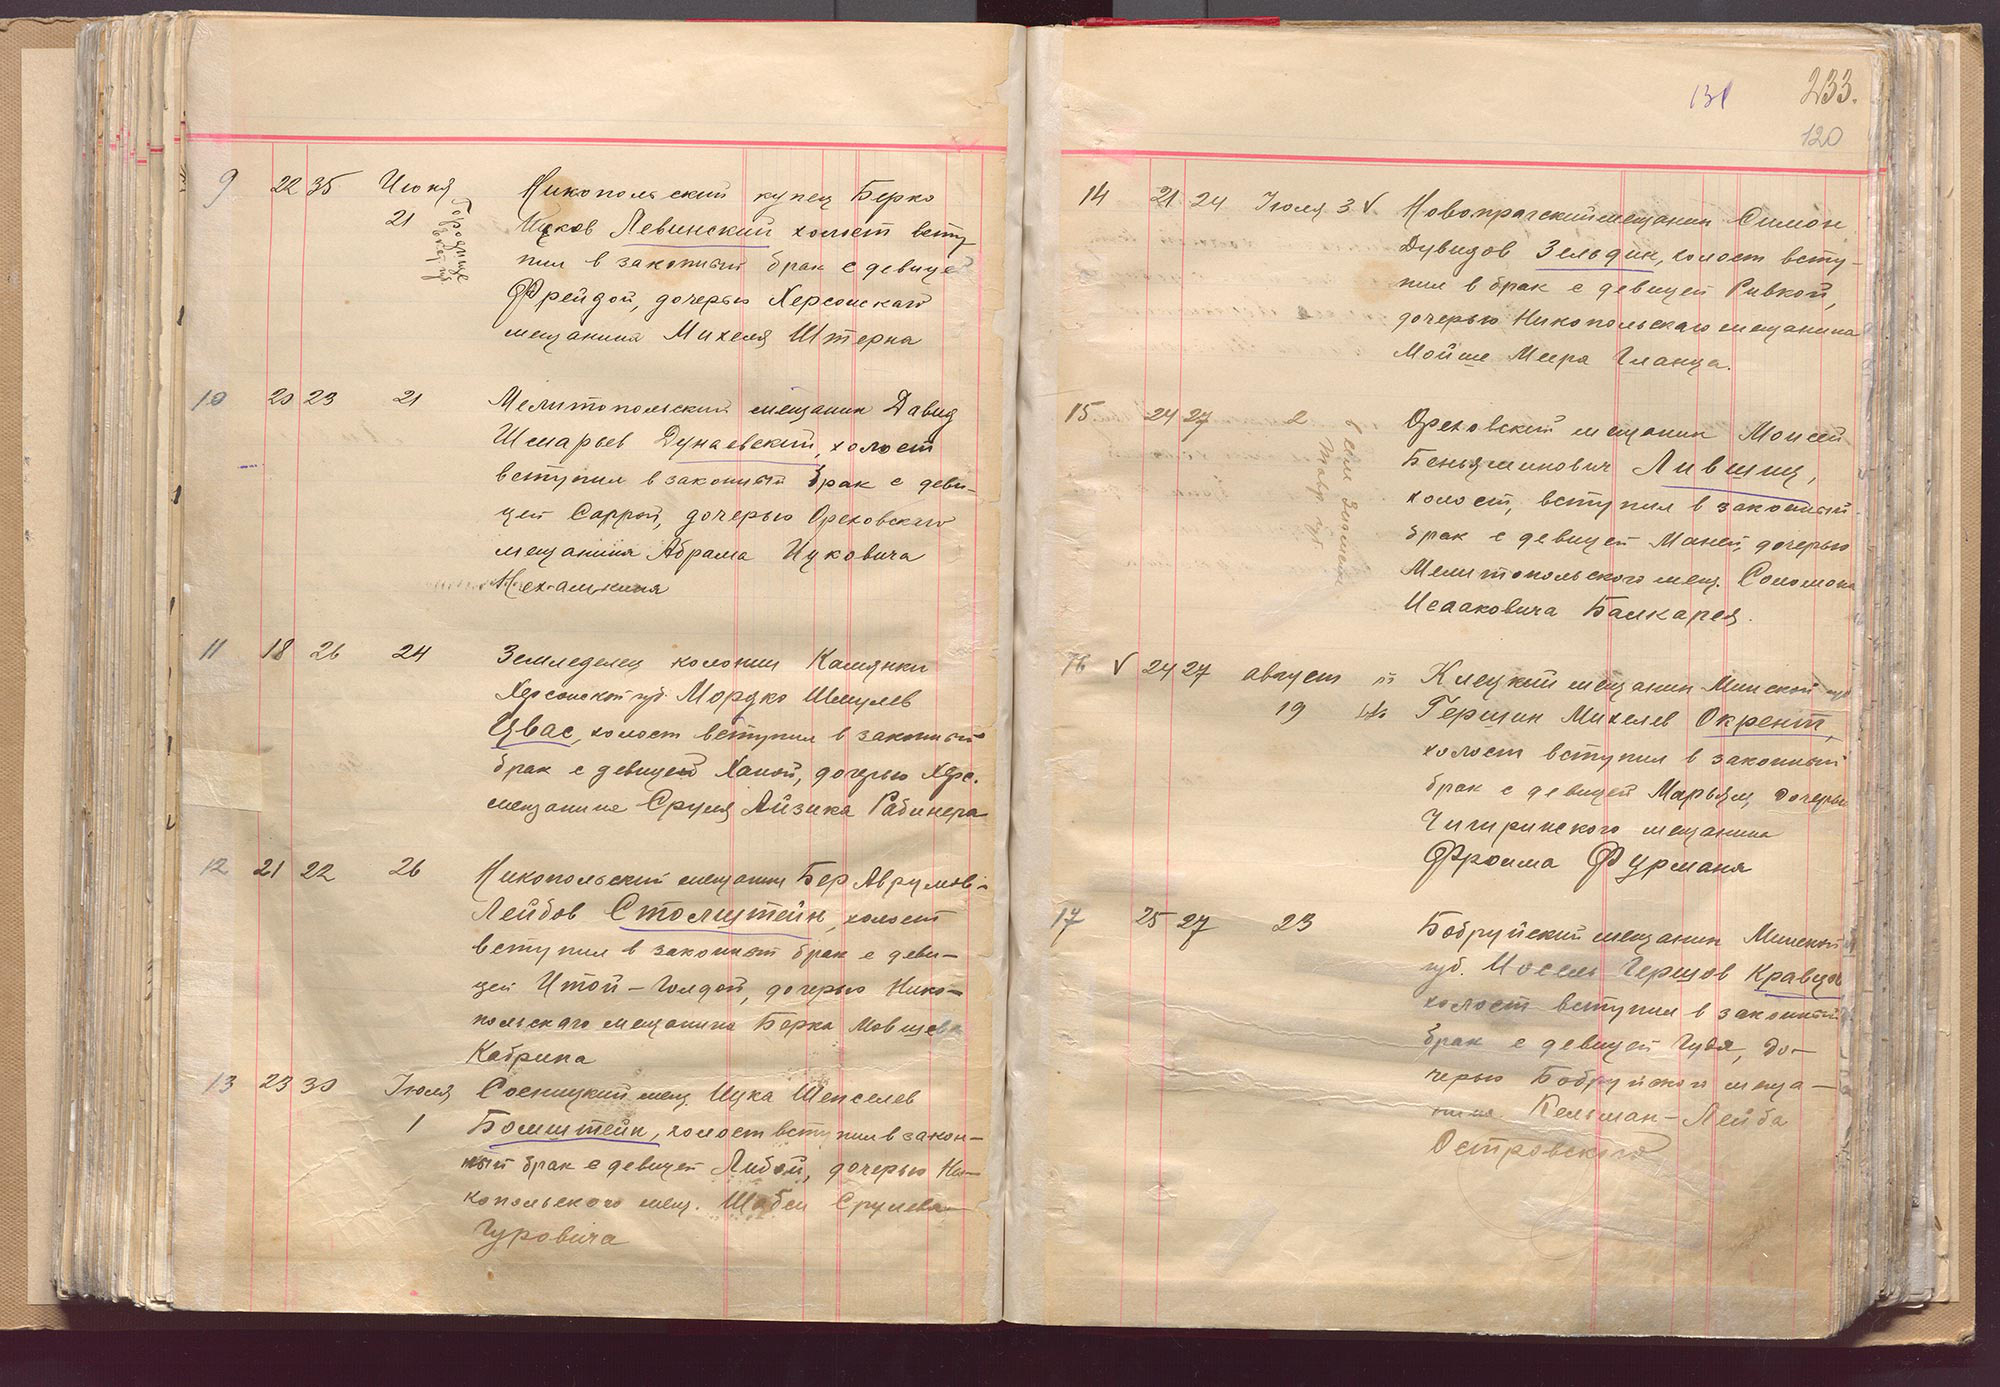 9 22 35 Июня Никопольский купец Берко
21 Ицков Левинский холост всту
пил в законный брак с девицей
Фрейдой, дочерью Херсонскаго
мещанина Михеля Штерна
10 20 23 21 Мелитопольский мещанин Давид
Шмарьев Дунаевский, холост
вступил в законный брак с деви-
цей Саррой, дочерью Ореховскаго
мещанина Абрама Ицковича
11 18 26 24 Земледелец колонии Камянки
Херсонской губ. Мордко Шмулев
Цвас, холост вступил в законный
брак с девицей Ханой, дочерью Херс.
мещанина Сруля Айзика Рабинера
12 21 22 26 Никопольский мещанин Бер Аврумов-
Лейбов Столиштейн, холост
вступил в законный брак с деви-
цей Итой-Голдой, дочерью Нико-
польскаго мещанина Берка Мовшева
Кабрина
13 23 30 Июля Сосницкий мещ. Ицка Шепселев
1 Бомштейн, холост вступил в закон-
ный брак с девицей Либой, дочерью Ни-
копольского мещ. Шабси Срулева
Гуровича
131 233.
120
14 21 24 Июля 3 V Новопражский мещанин Симон
Дувидов Зельдин, холост всту-
пил в брак с девицей Ривкой,
дочерью Никопольскаго мещанина
Мойше Меера Гланца.
15 24 27 2 Ореховский мещанин Моисей
Беньяминович Лившиц,
холост, вступил в законный
брак с девицей Маней, дочерью
Мелитопольского мещ. Соломона
Исааковича Балкарея.
16 V 24 27 август Клецкий мещанин Минской губ
19 Гершин Михелев Окрент,
холост вступил в законный
брак с девицей Марьям, дочерью
Чигиринского мещанина
Фроима Фурмана
17 25 27 23 Бобруйский мещанин Минской
губ. Иосель Гершов Кравцов
холост вступил в законный
брак с девицей Гудя, до-
черью Бобруйского меща-
нина Кельман-Лейба
Островского